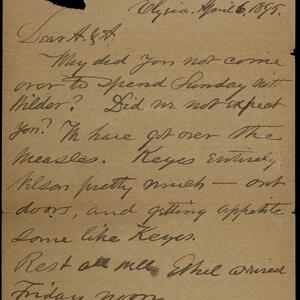 Elyria, April 6, 1895.
Dear A. & A.
Why did you not come
over to spend Sunday with
Wilder? Did we not expect
you? We have got over the
measles. Keyes entirely
Nelson pretty much — out
doors, and getting appetite
some like Keyes.
Rest all well. Ethel arrived
Friday noon